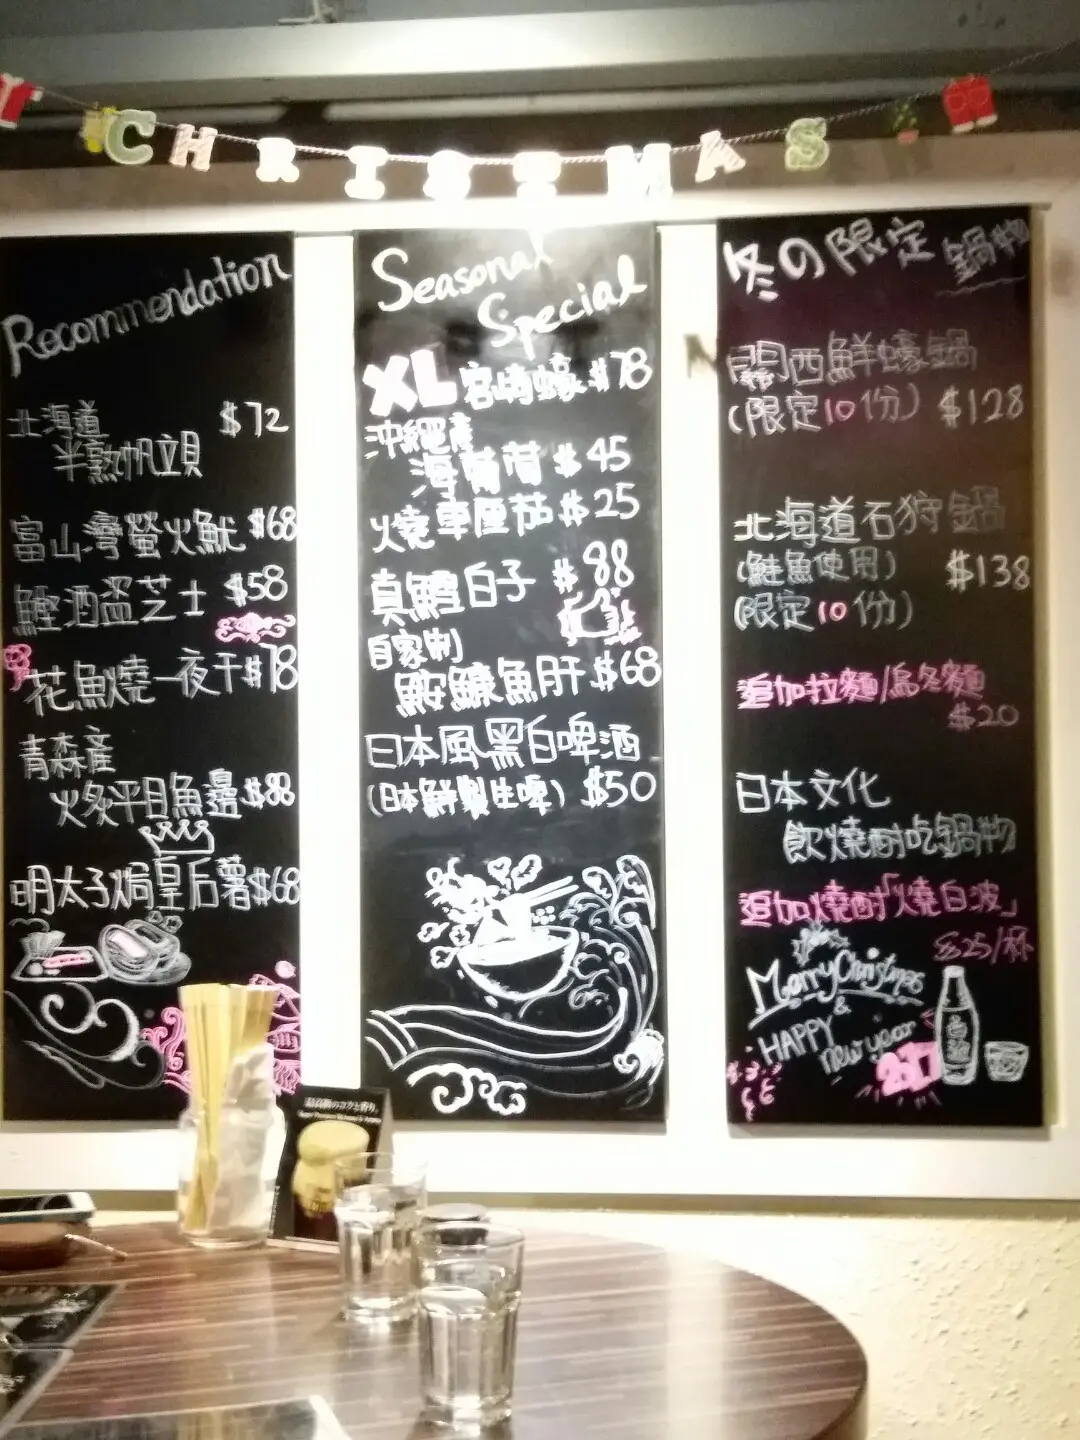 CHRISTMAS
Recommendation
北海道 $72
半熟帆立貝
富山灣螢火魷 $68
鰹酒盗芝士 $58
花魚燒一夜干 $78
青森産
火炙平目魚邊 $88
明太子焗皇后薯 $68
Seasonal
Special
XL 宮崎蠔 $78
沖縄産
海葡萄 $45
火燒車厘茄 $25
真鱈白子 $88
自家制
鮟鱇魚肝 $68
日本風黑白啤酒
(日本鮮製生啤) $50
冬の限定 鍋物
関西鮮蠔鍋
(限定10份) $128
北海道石狩鍋
(鮭魚使用) $138
(限定10份)
追加拉麵/烏冬麵
$20
日本文化
飲燒酎吃鍋物
追加燒酎「燒白波」
$25/杯
Merry Christmas
&
HAPPY
new year
2017
白波